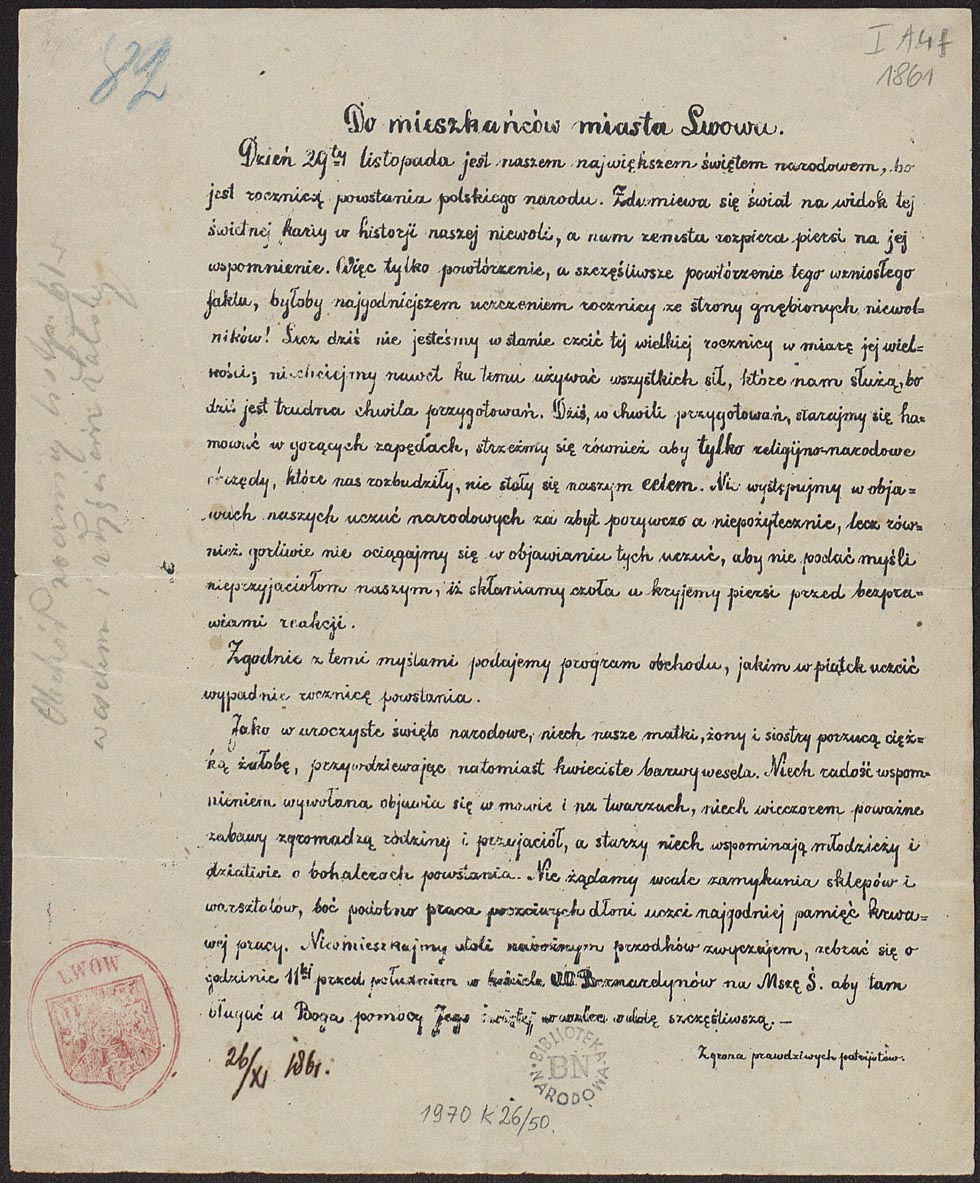 82
I A4f
1861
Do mieszkańców miasta Lwowa.
Dzień 29ty listopada jest naszem największem świętem narodowem, bo
jest rocznicą powstania polskiego narodu. Zdumiewa się świat na widok tej
świetnej karty w historji naszej niewoli, a nam zemsta rozpiera piersi na jej
wspomnienie. Więc tylko powtórzenie, a szczęśliwsze powtórzenie tego wzniosłego
faktu, byłoby najgodniejszem uczczeniem rocznicy ze strony gnębionych niewol=
ników! Lecz dziś nie jesteśmy w stanie czcić tej wielkiej rocznicy w miarę jej wiel=
kości; niechciejmy nawet ku temu używać wszystkich sił, które nam służą, bo
dziś jest trudna chwila przygotowań. Dziś, w chwili przygotowań, starajmy się ha=
mować w gorących zapędach, strzeżmy się również aby tylko religijno-narodowe
obrzędy, które nas rozbudziły, nie stały się naszym celem. Nie występujmy w obja=
wach naszych uczuć narodowych za zbyt porywczo a niepożytecznie, lecz rów=
nież gorliwie nie ociągajmy się w objawianiu tych uczuć, aby nie podać myśli
nieprzyjaciołom naszym, iż skłaniamy czoła u kryjemy piersi przed bezpra=
wiami reakcji.
Zgodnie z temi myślami podajemy program obchodu, jakim w piątek uczcić
wypadnie rocznicę powstania.
Jako w uroczyste święto narodowe, niech nasze matki, żony i siostry porzucą cięż=
ką żałobę, przywdziewając natomiast kwieciste barwy wesela. Niech radość wspom=
nieniem wywołana objawia się w mowie i na twarzach, niech wieczorem poważne
zabawy zgromadzą rodziny i przyjaciół, a starzy niech wspominają młodzieży i
dziatwie o bohaterach powstania. Nie żądamy wcale zamykania sklepów i
warsztatów, boć podobno praca poczciwych dłoni uczci najgodniej pamięć krwa=
wej pracy. Nieomieszkajmy atoli nabożnym przodków zwyczajem, zebrać się o
godzinie 11tej przed południem w kościele OO Bernardynów na Mszę Ś. aby tam
błagać u Boga pomocy Jego szczęśliwszą. —
Zgrona prawdziwych patrjotów.
26/XI 1861.
LWÓW
BIBLIOTEKA
BN
NARODOWA
1970 K 26/50.
Obchód rocznicy listopadowej